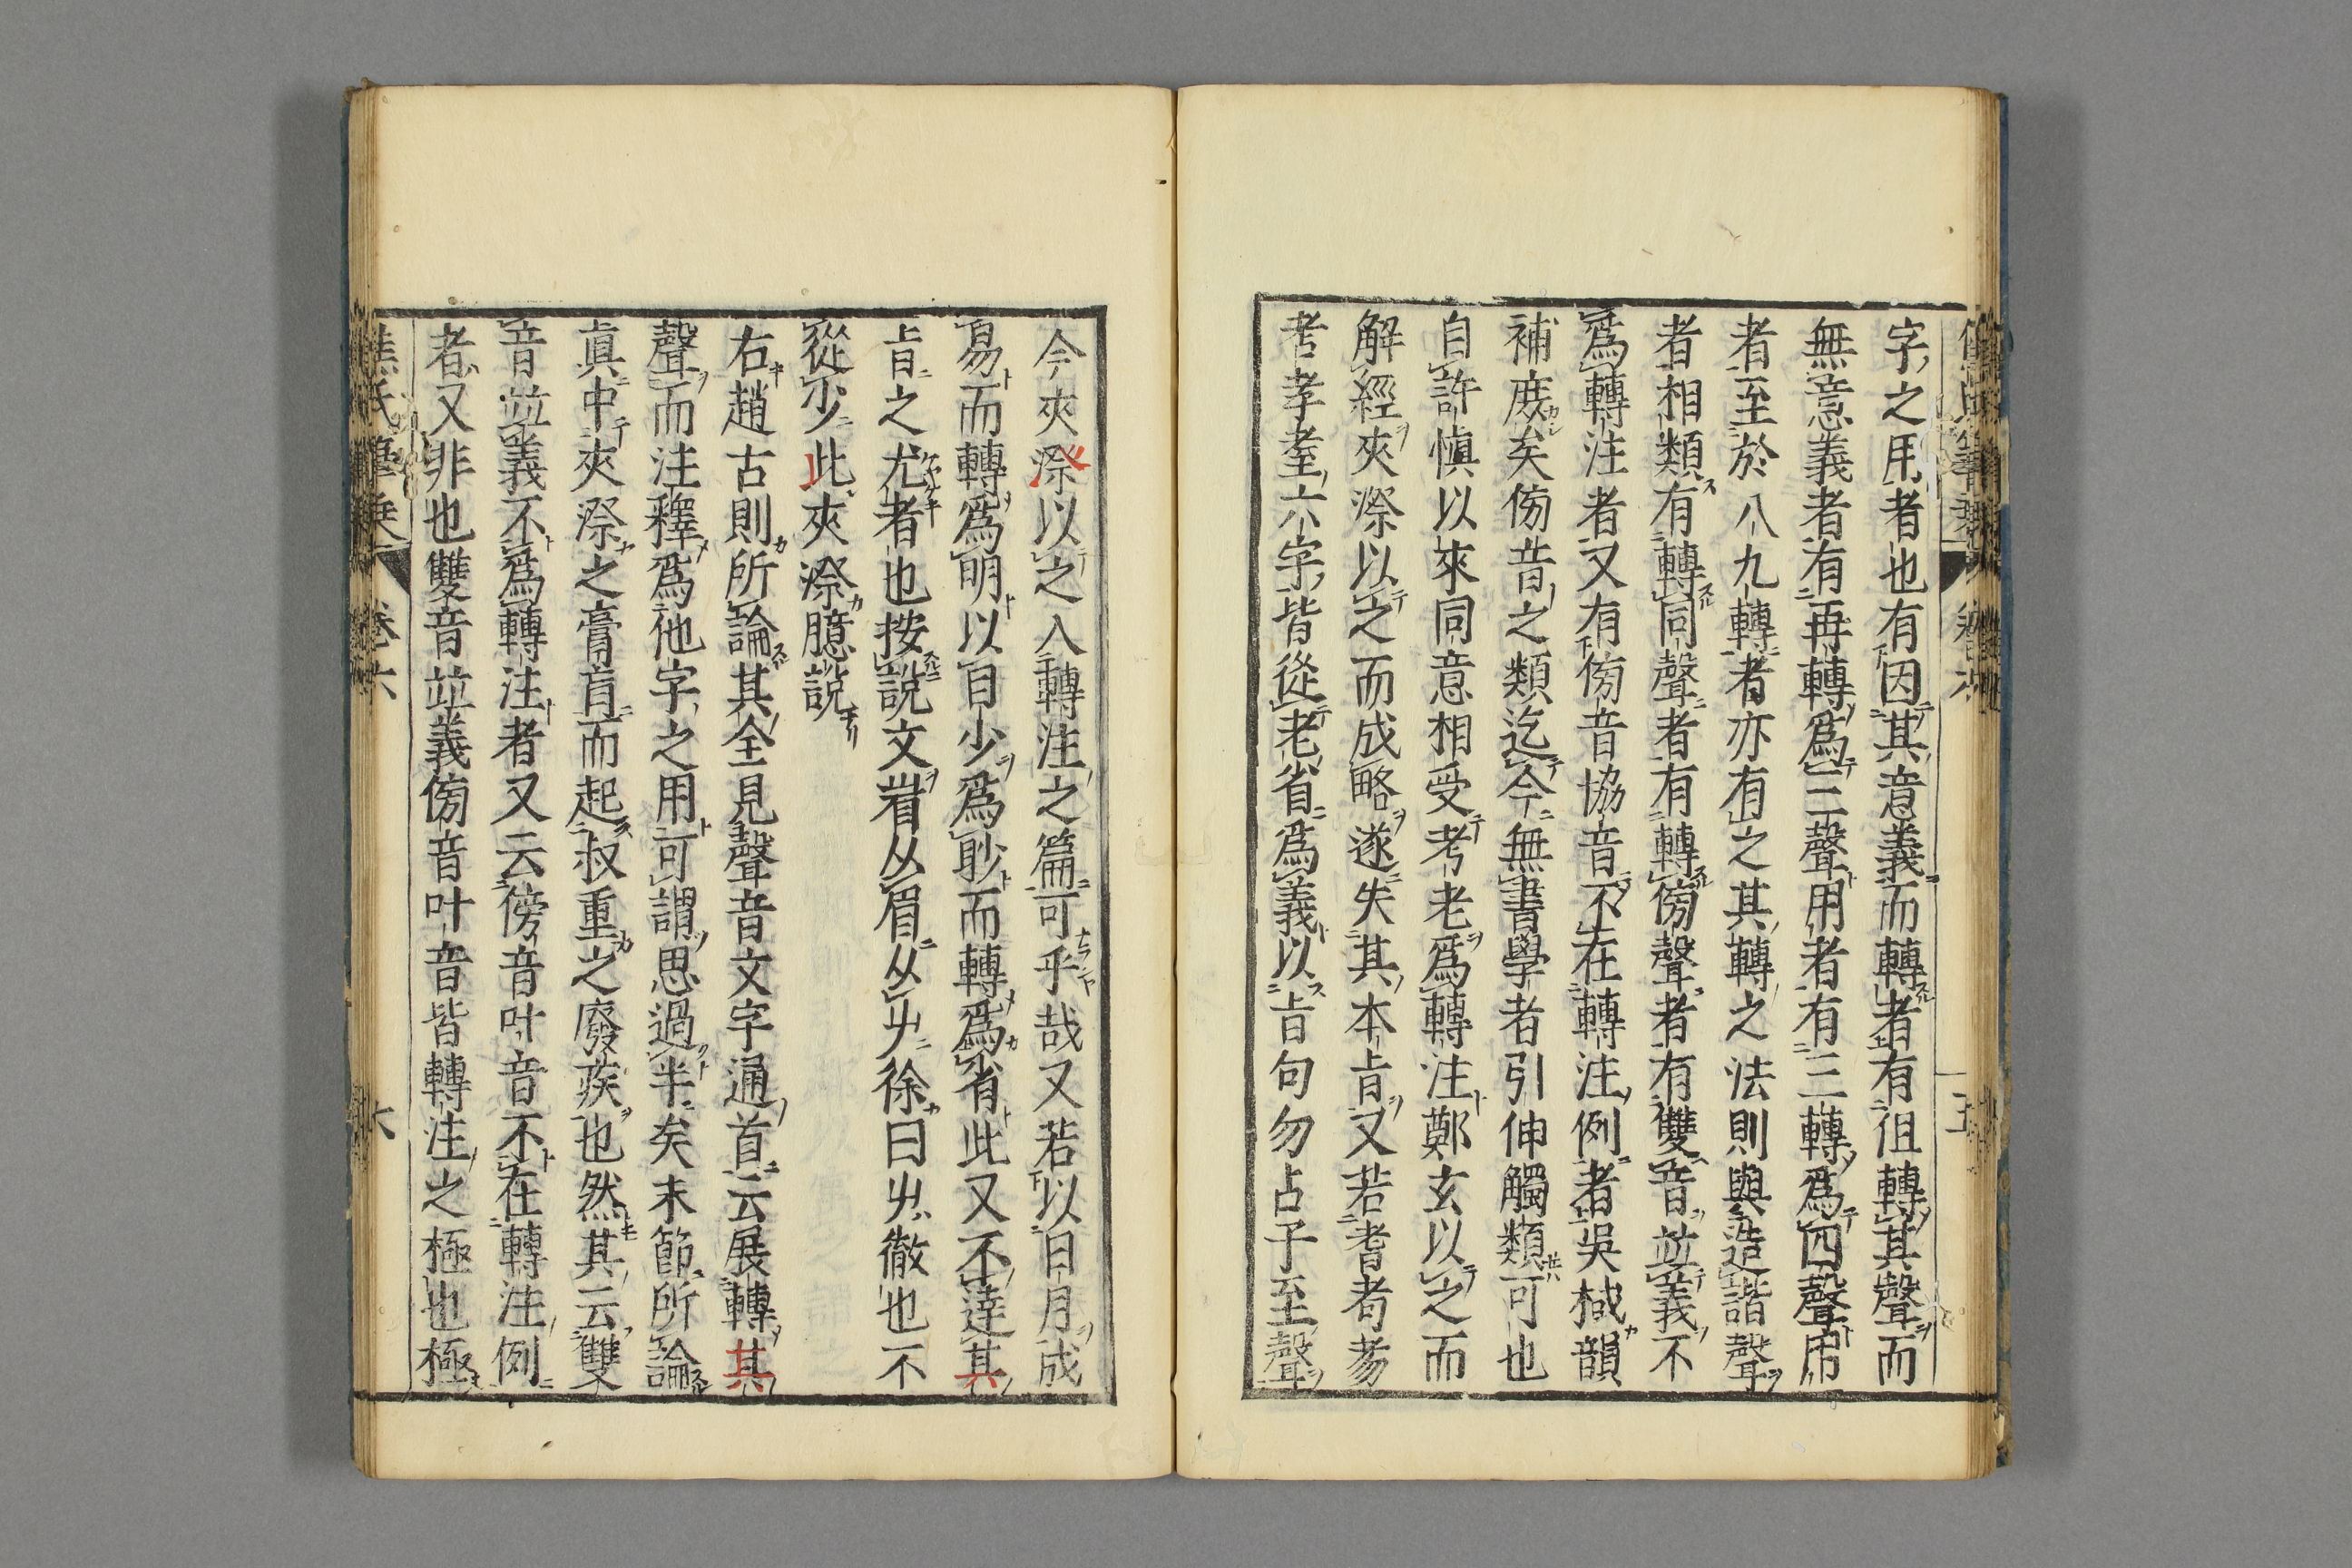 字之用者也有因其意義而轉者有但轉其聲而
無意義者有再轉爲三聲用者有三轉爲四聲用
者至於八九轉者亦有之其轉之法則與造諧聲
者相類有轉同聲者有轉傍聲者有雙音並義不
爲轉注者又有傍音協音不在轉注例者吳棫韻
補庻矣傍音之類迄今無書學者引伸觸類可也
自許愼以來同意相受考老爲轉注鄭玄以之而
解經夾漈以之而成略遂失其本㫖又若耆者䔑
考孝耊六字皆從老省爲義以㫖句勿占子至聲
今夾漈以之入轉注之篇可乎哉又若以日月成
易而轉爲明以目少爲眇而轉爲省此又不達其
㫖之尤者也按說文省从眉从屮徐曰屮徹也不
從少此夾漈臆說
右趙古則所論其全見聲音文字通首云展轉其
聲而注釋爲他字之用可謂思過半矣末節所論
眞中夾漈之膏肓而起叔重之廢疾也然其云雙
音並義不爲轉注者又云傍音叶音不在轉注例
者又非也雙音並義傍音叶音皆轉注之極也極
焦氏筆乗 卷六 六